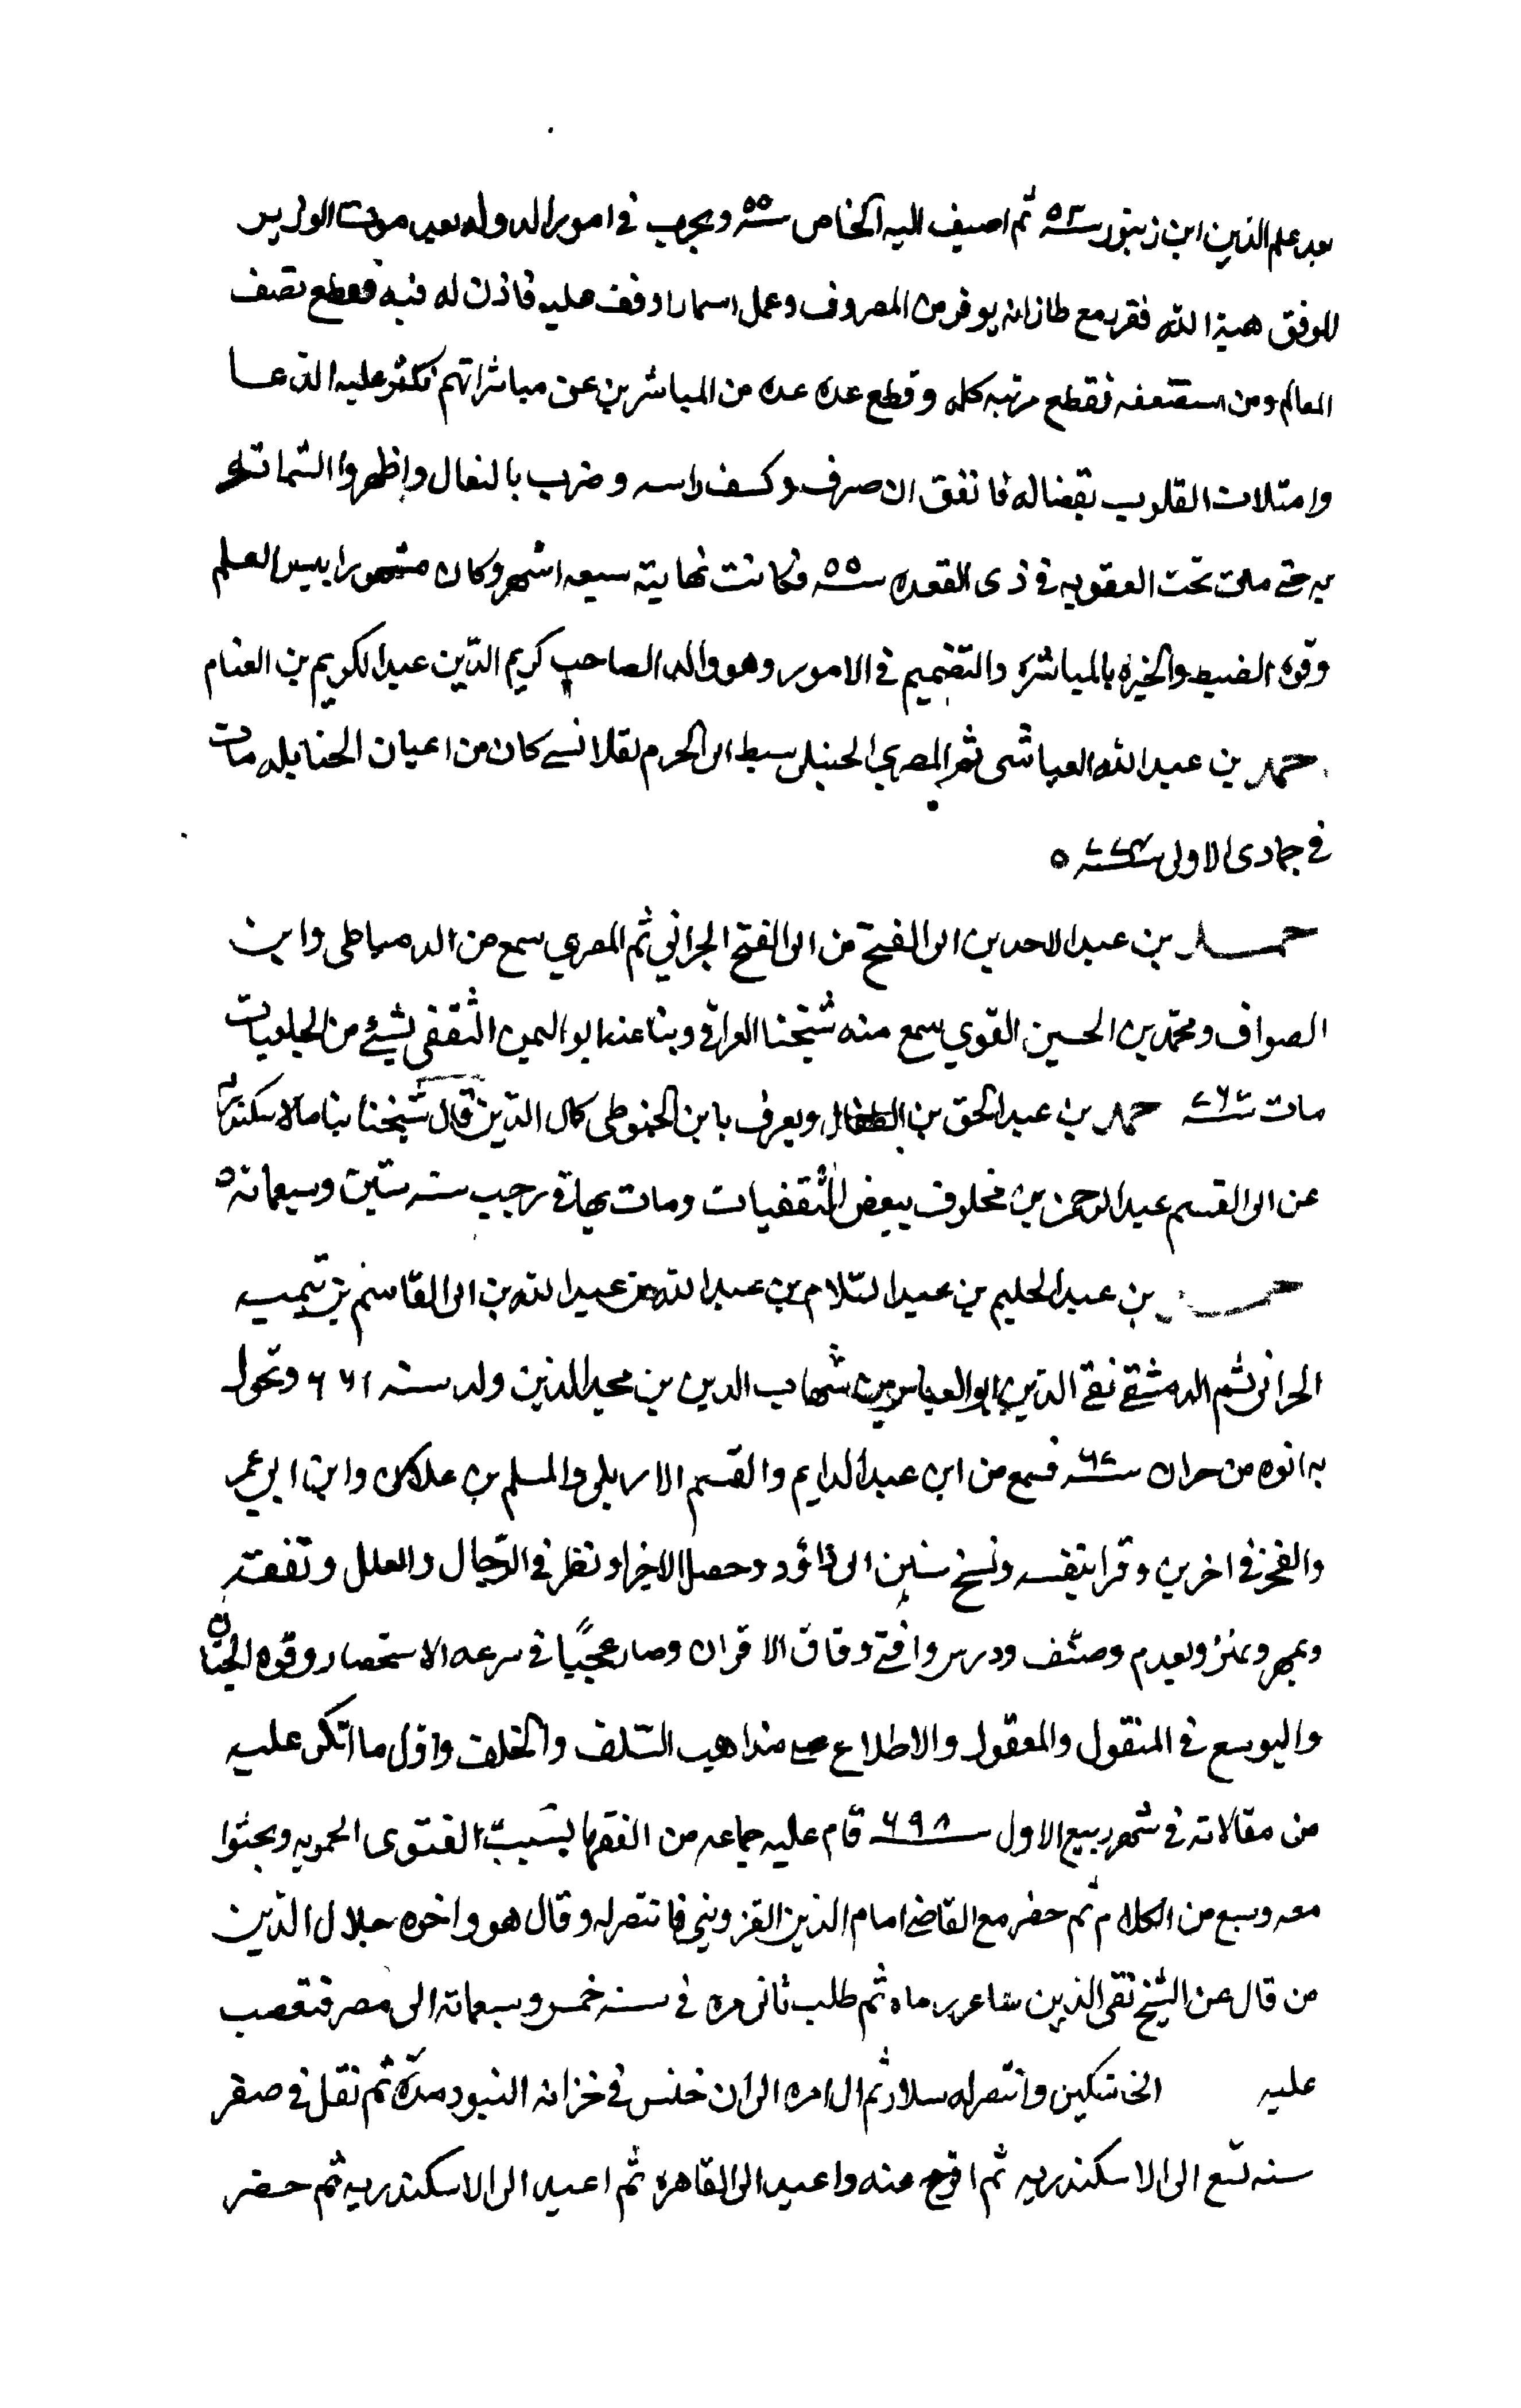 بعد علم الدين ابن زنبور سنة ٥٣ ثم اضيف اليه الخاص سنة ٥٥ وبحرب في امور الدوله بعد موت الوزير
الموفق هبة الله فقرر مع طاز انه يوفر من المصروف وعمل اسمارا وقف عليه فاذن له فيه فقطع نصف
المعالم ومن استضعفه فقطع مرتبه كله وقطع عده عده من المباشرين عن مباشراتهم فكثر عليه الدعا
وامتلات القلوب بغضا له فاتفق ان صرف وكسف راسه وضرب بالنعال واظهروا الشماتة
به حتى مات تحت العقوبه في ذى القعده سنة ٥٥ فكانت نهايته سبعه اشهر وكان مشهورا بيبس العلم
وقوه الضبط والخبره بالمباشره والتصميم في الامور وهو والد الصاحب كريم الدين عبد الكريم بن الغنام
حمد بن عبد الله العباشى ثم المصري الحنبلى سبط ابى الحرم لقلانسي كان من اعيان الحنابله مات
في جمادى الاولى سنة ٧٧٣ ٥
حمد بن عبد الاحد بن ابى الفتح من ابى الفتح الحراني ثم المصري سمع من الدمياطى وابن
الصواف ومحمد بن الحسين القوي سمع منه شيخنا العراقي وبنا عنه ابو اليمن الثقفى بشيئ من الحلويات
مات سنة ٧٦٧ حمد بن عبد الحق بن ويعرف بابن الحنوطى كمال الدين قال شيخنا بنا مالاسكندريه
عن ابى القسم عبد الرحمن بن مخلوف ببعض الثقفيات ومات بها في رجب سنه ستين وسبعمائه ٥
حمد بن عبد الحليم بن عبد السلام بن عبد الله بن عبد الله بن ابى القاسم بن تيميه
الحرانى ثم الدمشقي تقي الدين ابو العباس بن شهاب الدين بن مجد الدين ولد سنه ٦٦١ وتحول
به ابوه من حران سنة ٦٧ فسمع من ابن عبد الدايم والقسم الاربلى والمسلم بن علان وابن ابى عمر
والفخر في اخرين وقرا بنفسه ونسخ سنين ابى داؤد وحصل الاخرا ونظر في الرجال والعلل وتفقه
وبمهر وتميز وتعدم وصنف ودرس وافتي وفاق الاقران وصار عجيًا في سرعه الاستحضار وقوه الجنان
واليوسع في المنقول والمعقول والاطلاع على مذاهب السلف والخلف واول ما انكر عليه
من مقالاته في شهر ربيع الاول سنة ٦٩٨ قام عليه جماعه من الفقها بسبب الفتوى الحمويه وبحثوا
معه وسبع من الكلام ثم حضر مع القاضى امام الدين القزويني فانتصر له وقال هو واخوه جلال الدين
من قال عن الشيخ تقي الدين شاعررماه ثم طلب ثانى مره في سنه خمس وسبعمائه الى مصر فتعصب
عليه الخاشنكين وانتصر له سلار ثم ال امره الى ان حبس في خزانه البنود مدّه ثم نقل في صفر
سنه تسع الى الاسكندريه ثم افرج عنه واعيد الى القاهره ثم اعيد الى الاسكندريه ثم حضر